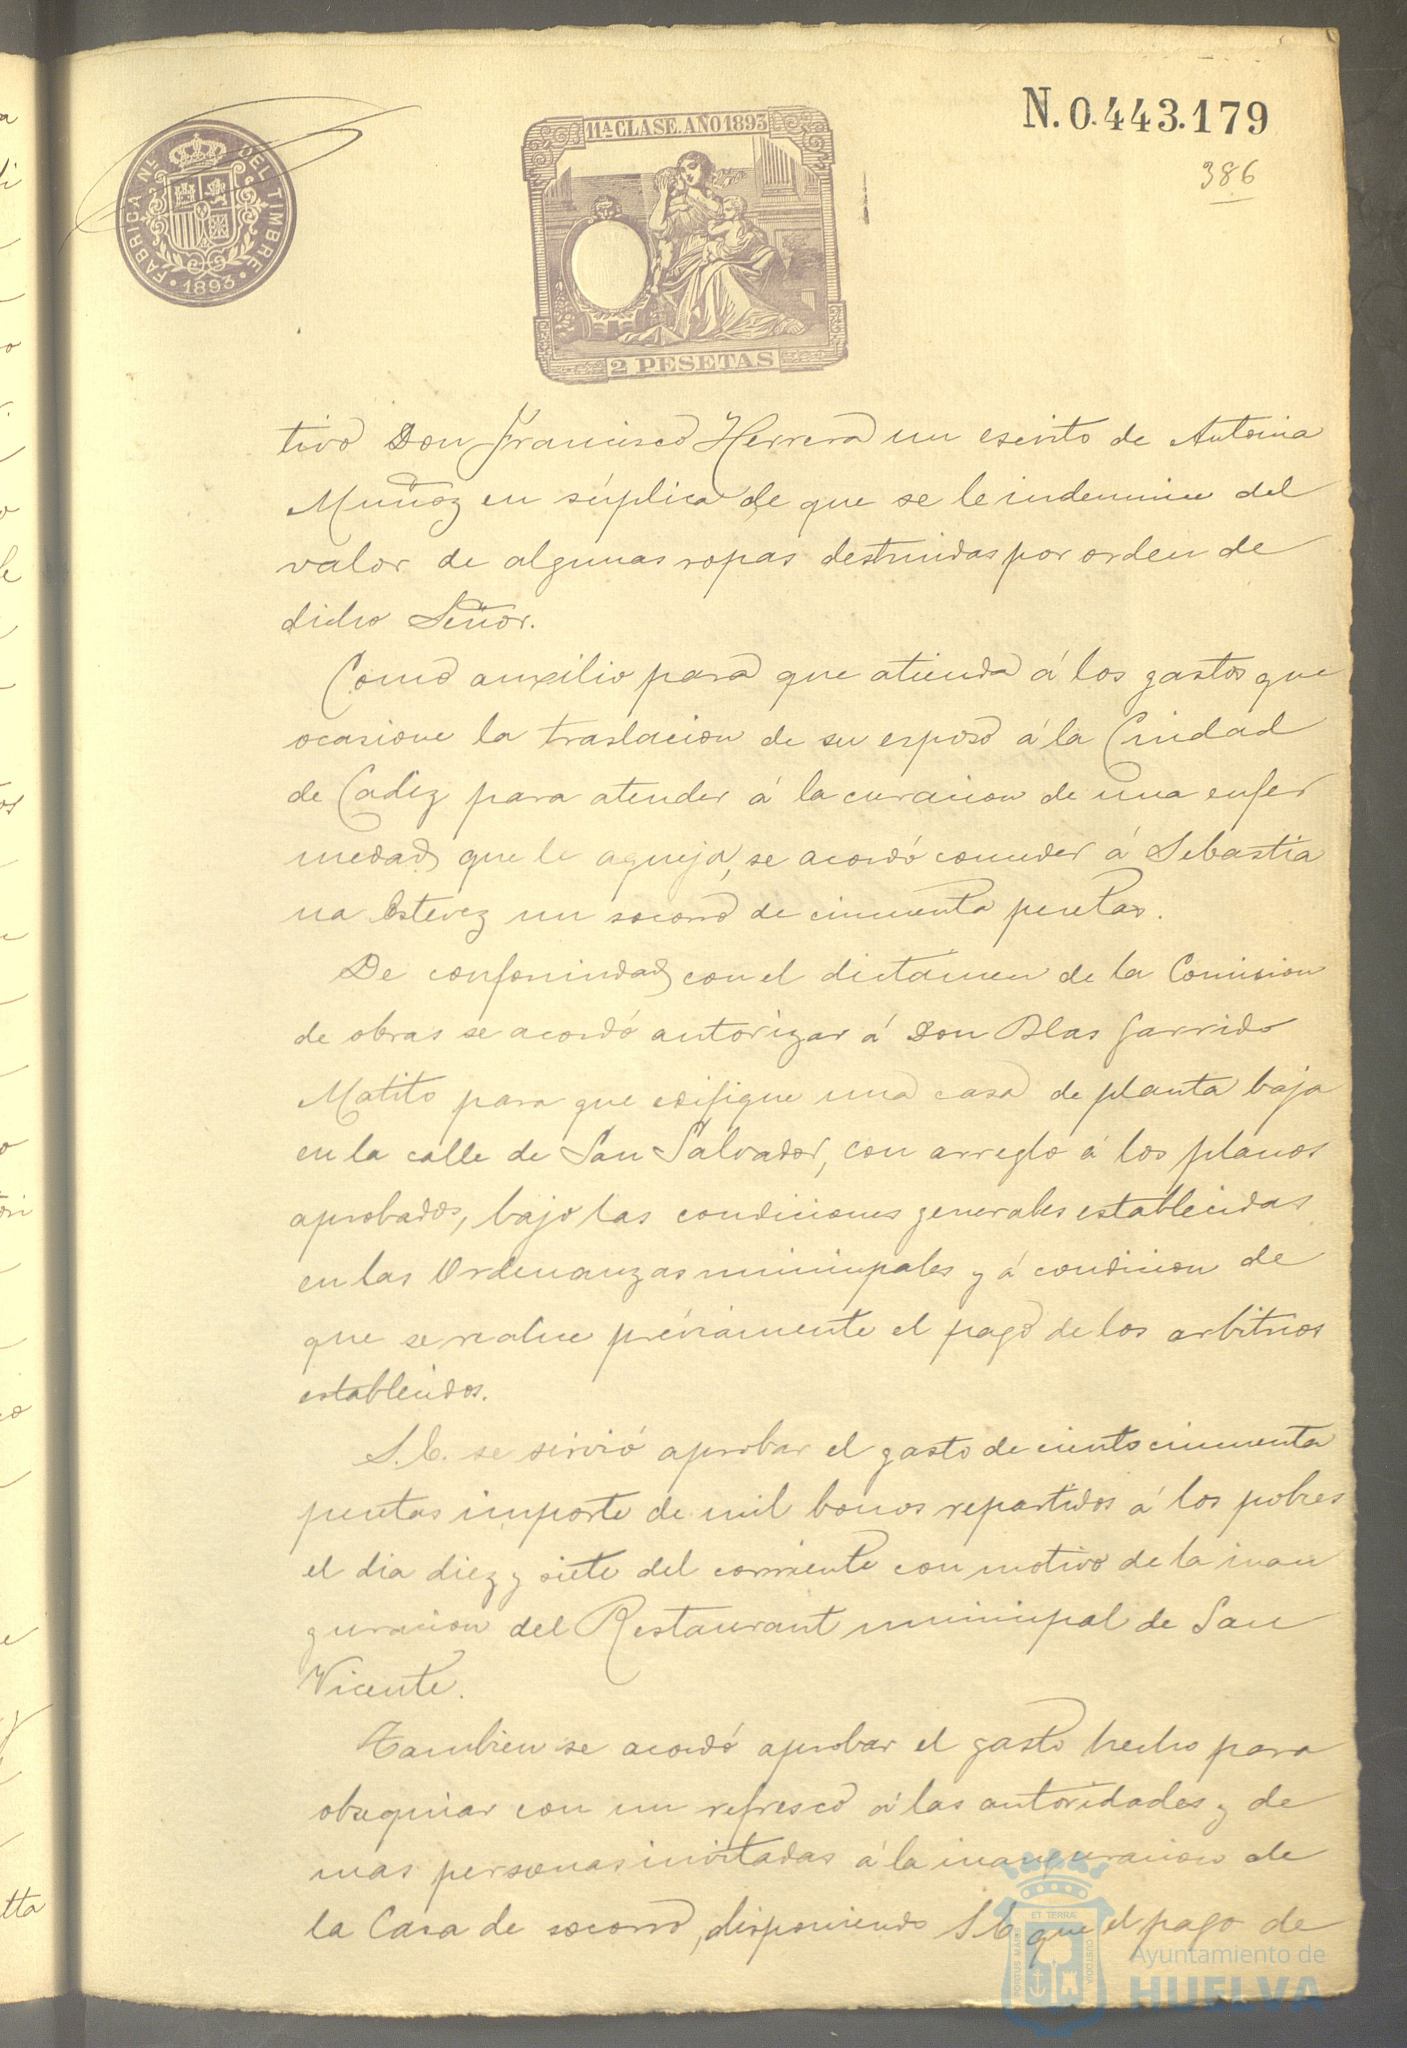 N. 0.443.179
386
FABRICA NL. DEL TIMBRE
1893
11ª CLASE. AÑO 1893
2 PESETAS
tivo Don Francisco Herrera un escrito de Antonia
Muñoz en súplica de que se le indemnice del
valor de algunas ropas destruidas por orden de
dicho Señor.
Como auxilio para que atienda á los gastos que
ocasione la traslacion de su esposo á la Ciudad
de Cadiz para atender á la curacion de una enfer
medad que le aqueja, se acordó conceder á Sebastia
na Estevez un socorro de cincuenta pesetas.
De conformidad con el dictámen de la Comision
de obras se acordó autorizar á Don Blas Garrido
Matito para que edifique una casa de planta baja
en la calle de San Salvador, con arreglo á los planos
aprobados, bajo las condiciones generales establecidas
en las Ordenanzas municipales y á condicion de
que se realice préviamente el pago de los arbitrios
establecidos.
S.E. se sirvió aprobar el gasto de ciento cincuenta
pesetas importe de mil bonos repartidos á los pobres
el dia diez y siete del corriente con motivo de la inau
guracion del Restaurant municipal de San
Vicente.
Tambien se acordó aprobar el gasto hecho para
obsequiar con un refresco á las autoridades y de
mas personas invitadas á la inauguracion de
la Casa de socorro, disponiendo S.E. que el pago de
tta
PORTUS MARIS ET TERRÆ CUSTODIA
Ayuntamiento de
HUELVA